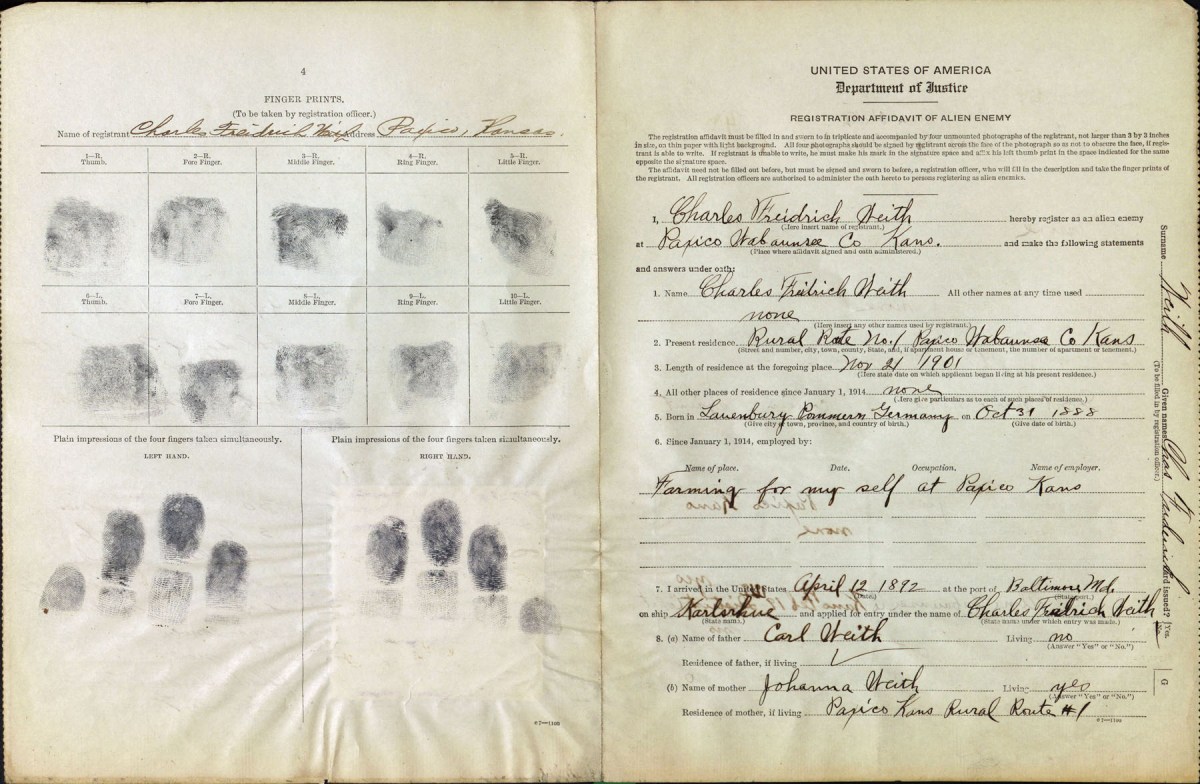 4
FINGER PRINTS.
(To be taken by registration officer.)
Name of registrant Charles Freidrich Weith Address Paxico, Kansas.
1—R. Thumb. 2—R. Fore Finger. 3—R. Middle Finger. 4—R. Ring Finger. 5—R. Little Finger.
6—L. Thumb. 7—L. Fore Finger. 8—L. Middle Finger. 9—L. Ring Finger. 10—L. Little Finger.
Plain impressions of the four fingers taken simultaneously. Plain impressions of the four fingers taken simultaneously.
LEFT HAND. RIGHT HAND.
UNITED STATES OF AMERICA
Department of Justice
REGISTRATION AFFIDAVIT OF ALIEN ENEMY
The registration affidavit must be filled in and sworn to in triplicate and accompanied by four unmounted photographs of the registrant, not larger than 3 by 3 inches
in size, on thin paper with light background. All four photographs should be signed by registrant across the face of the photograph so as not to obscure the face, if regis-
trant is able to write. If registrant is unable to write, he must make his mark in the signature space and affix his left thumb print in the space indicated for the same
opposite the signature space.
The affidavit need not be filled out before, but must be signed and sworn to before, a registration officer, who will fill in the description and take the finger prints of
the registrant. All registration officers are authorized to administer the oath hereto to persons registering as alien enemies.
I, Charles Freidrich Weith hereby register as an alien enemy
(Here insert name of registrant.)
at Paxico Wabaunsee Co Kans. and make the following statements
(Place where affidavit signed and oath administered.)
and answers under oath:
1. Name Charles Freidrich Weith All other names at any time used
none
(Here insert any other names used by registrant.)
2. Present residence Rural Rote No. 1 Paxico Wabaunsee Co Kans
(Street and number, city, town, county, State, and, if apartment house or tenement, the number of apartment or tenement.)
3. Length of residence at the foregoing place Nov 21 1901
(Here state date on which applicant began living at his present residence.)
4. All other places of residence since January 1, 1914 none
(Here give particulars as to each of such places of residence.)
5. Born in Lauenburg Pommern Germany on Oct 31 1888
(Give city or town, province, and country of birth.) (Give date of birth.)
6. Since January 1, 1914, employed by:
Name of place. Date. Occupation. Name of employer.
Farming for my self at Paxico Kans
7. I arrived in the United States April 12 1892 at the port of Baltimore Md.
(Date.) (State port.)
on ship Karlsruhe and applied for entry under the name of Charles Freidrich Weith
(State name.) (State name under which entry was made.)
8. (a) Name of father Carl Weith Living no
(Answer "Yes" or "No.")
Residence of father, if living
(b) Name of mother Johanna Weith Living yes
(Answer "Yes" or "No.")
Residence of mother, if living Paxico Kans Rural Route #1
Surname Weith Given names Chas card issued? Yes. No.
(To be filled in by registration officer.)
G